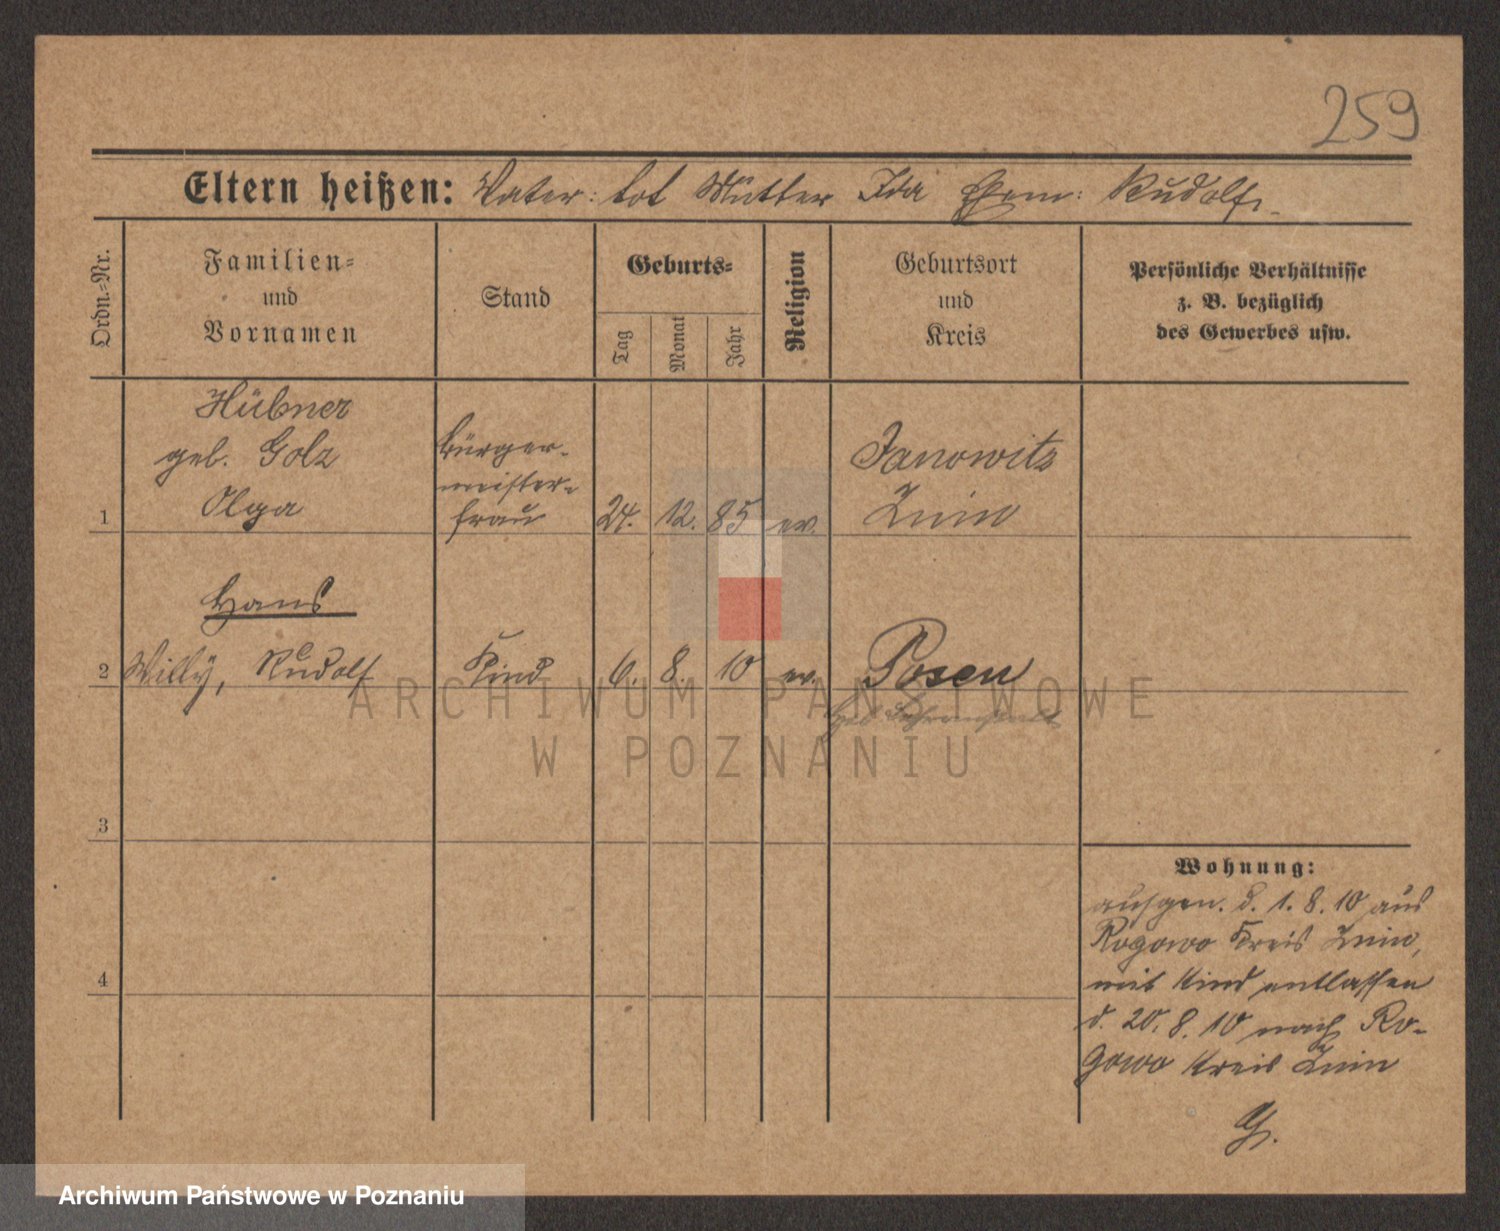 259
Eltern heißen: Vater: tot Mutter Ida Ehem: Rudolf
Ordn.-Nr.
Familien-
und
Vornamen
Stand
Geburts-
Tag
Monat
Jahr
Religion
Geburtsort
und
Kreis
Persönliche Verhältnisse
z. B. bezüglich
des Gewerbes usw.
Hübner
geb. Golz
Olga
Bürger-
meister-
frau
1
24. 12. 85 ev.
Janowitz
Znin
Hans
2 Willy, Rudolf Kind 6. 8. 10 ev. Posen
3
4
Wohnung:
aufgen. d. 1. 8. 10 aus
Rogowo Kreis Znin,
mit Kind entlassen
d. 20. 8. 10 nach Ro-
gowo Kreis Znin
ARCHIWUM PAŃSTWOWE
W POZNANIU
Archiwum Państwowe w Poznaniu